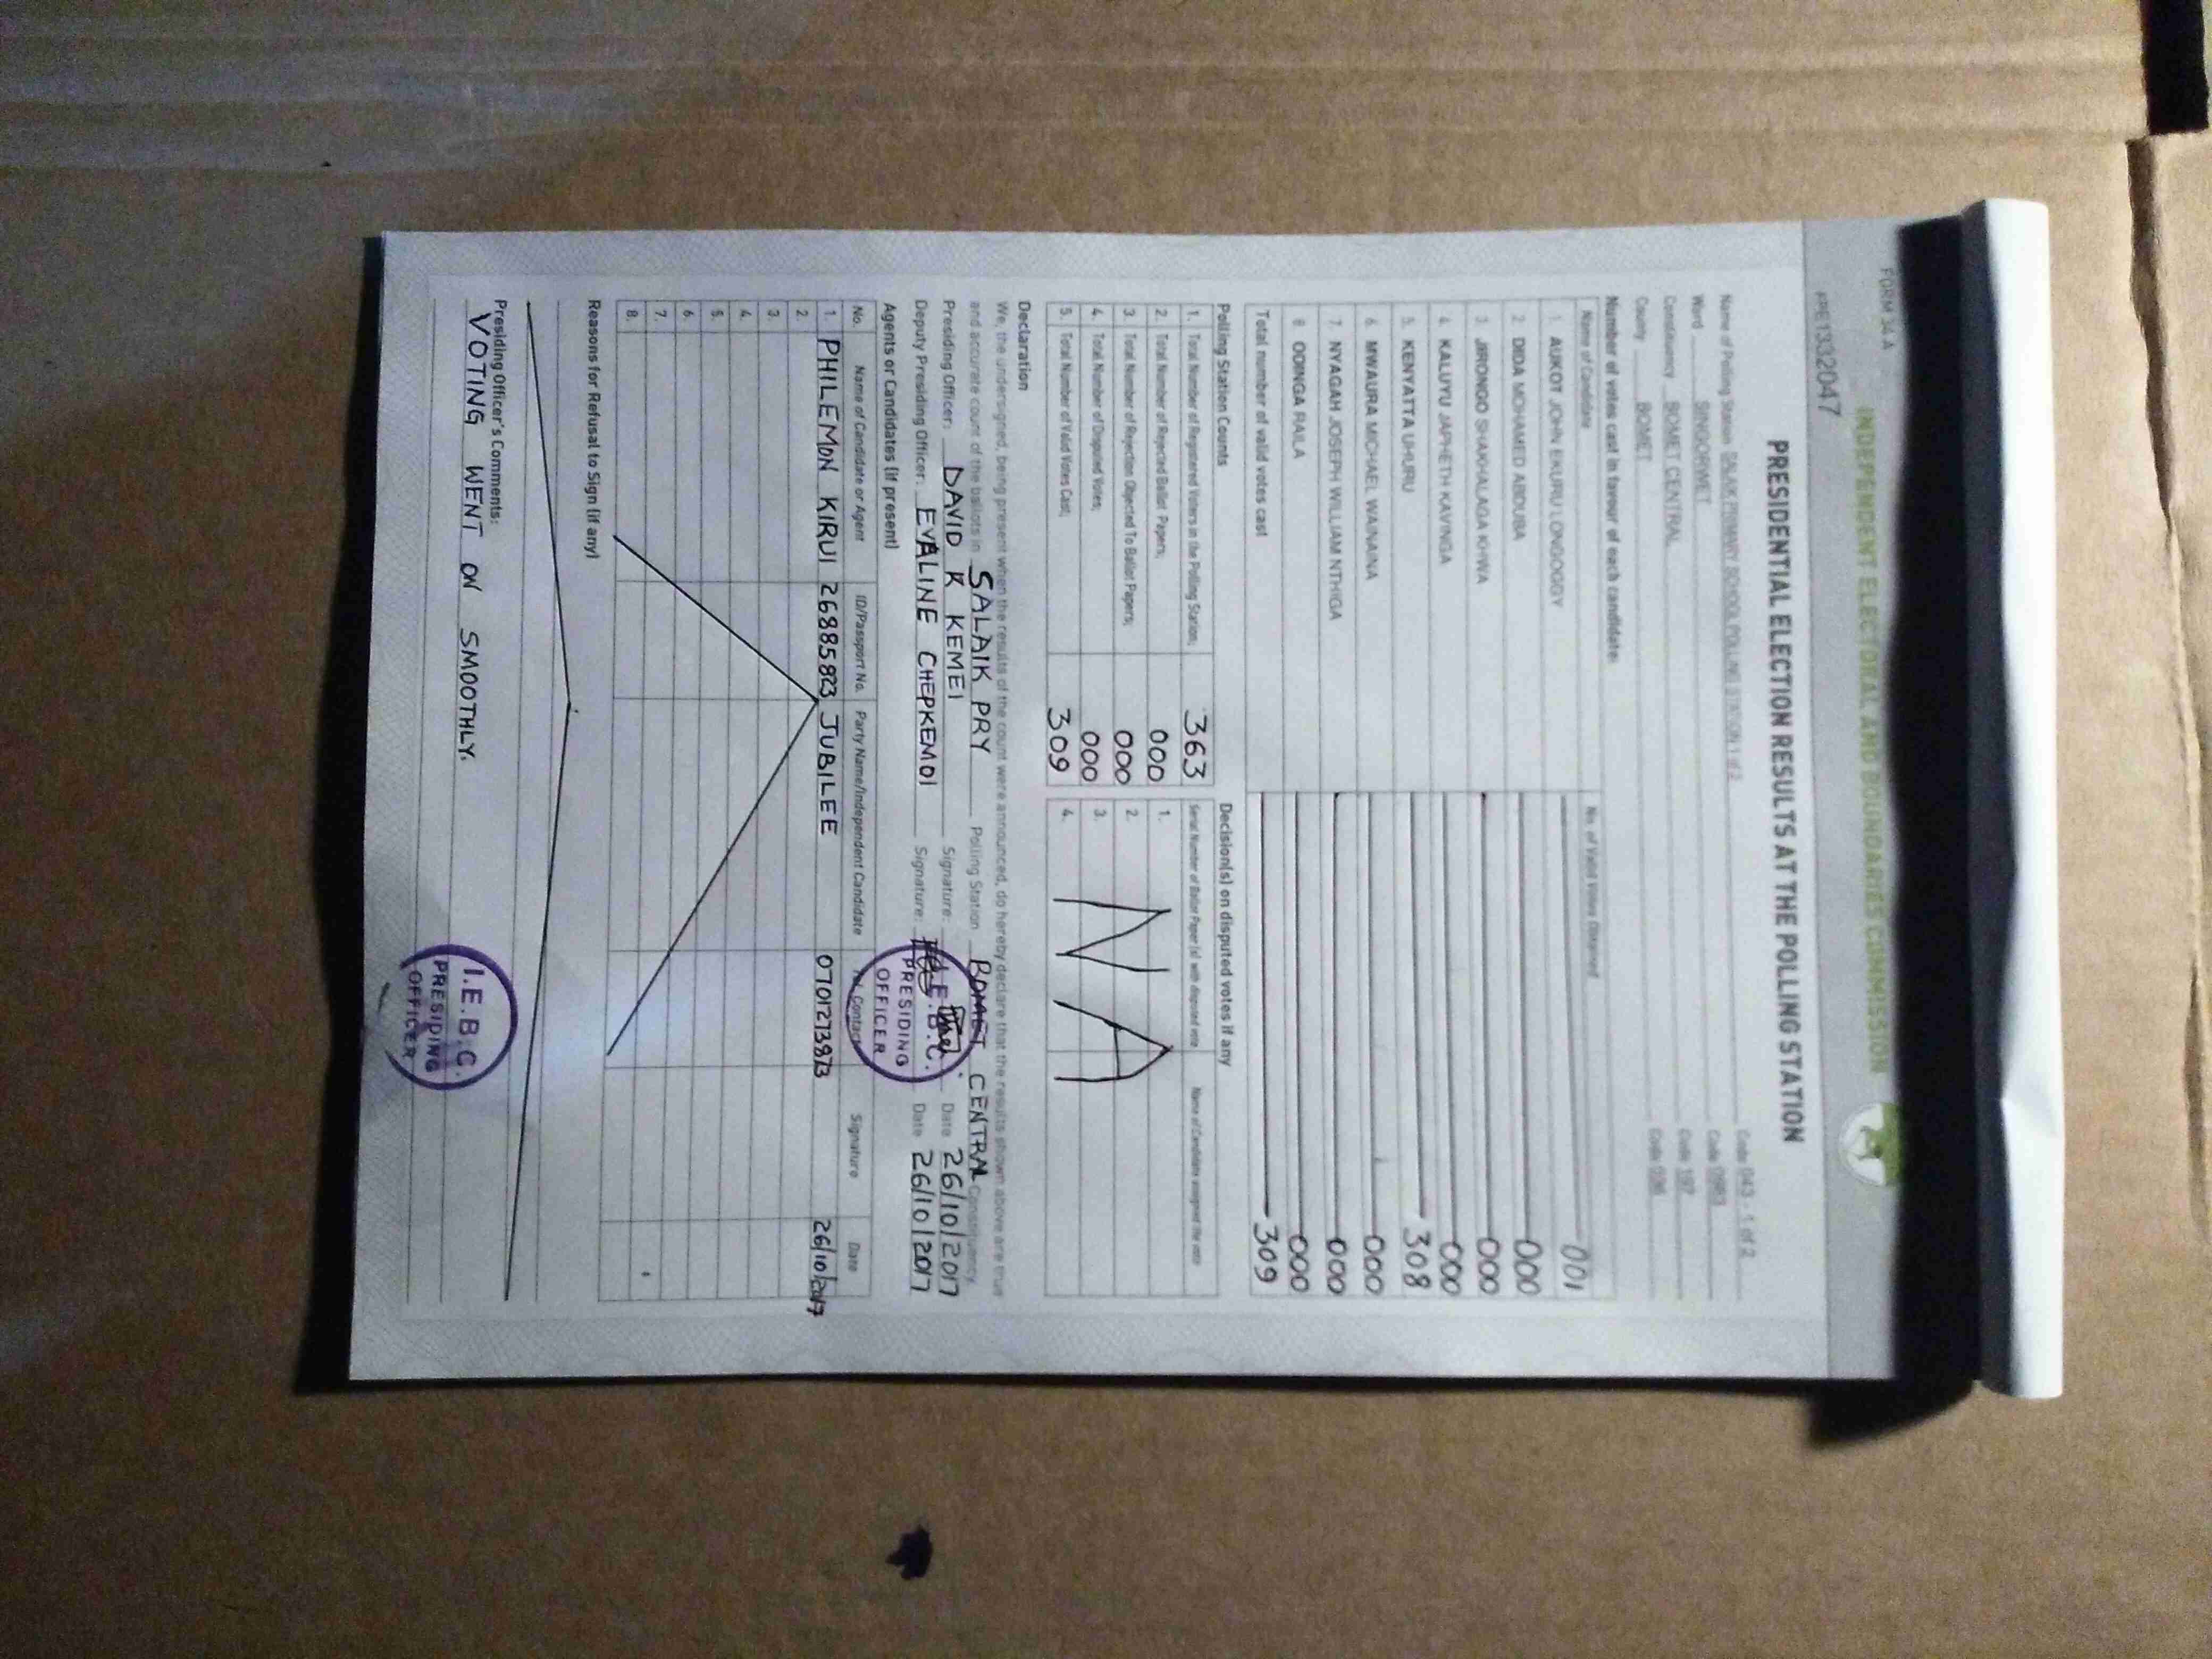 FORM 34 A
INDEPENDENT ELECTORAL AND BOUNDARIES COMMISSION
PRE1332047
PRESIDENTIAL ELECTION RESULTS AT THE POLLING STATION
Name of Polling Station SALAIK PRIMARY SCHOOL POLLING STATION 1 of 2 Code 043 - 1 of 2
Ward SINGORWET Code 0983
Constituency BOMET CENTRAL Code 197
County BOMET Code 036
Number of votes cast in favour of each candidate:
Name of Candidate No. of Valid Votes Obtained
1. AUKOT JOHN EKURU LONGOGGY 001
2. DIDA MOHAMED ABDUBA 000
3. JIRONGO SHAKHALAGA KHWA 000
4. KALUYU JAPHETH KAVINGA 000
5. KENYATTA UHURU 308
6. MWAURA MICHAEL WAINAINA 000
7. NYAGAH JOSEPH WILLIAM NTHIGA 000
8. ODINGA RAILA 000
Total number of valid votes cast 309
Polling Station Counts
1. Total Number of Registered Voters in the Polling Station; 363
2. Total Number of Rejected Ballot Papers; 000
3. Total Number of Rejection Objected To Ballot Papers; 000
4. Total Number of Disputed Votes; 000
5. Total Number of Valid Votes Cast; 309
Decision(s) on disputed votes if any
Serial Number of Ballot Paper (s) with disputed vote Name of Candidate assigned the vote
1.
2.
3.
4.
NA
Declaration
We, the undersigned, being present when the results of the count were announced, do hereby declare that the results shown above are true
and accurate count of the ballots in SALAIK PRY Polling Station BOMET CENTRAL Constituency.
Presiding Officer: DAVID K KEMEI Signature: Date 26/10/2017
Deputy Presiding Officer: EVALINE CHEPKEMOI Signature: Date 26/10/2017
I.E.B.C.
PRESIDING
OFFICER
Agents or Candidates (if present)
No. Name of Candidate or Agent ID/Passport No. Party Name/Independent Candidate Tel. Contact Signature Date
1. PHILEMON KIRUI 26885823 JUBILEE 0701273873 26/10/2017
2.
3.
4.
5.
6.
7.
8.
Reasons for Refusal to Sign (if any)
Presiding Officer's Comments:
VOTING WENT ON SMOOTHLY.
I.E.B.C.
PRESIDING
OFFICER